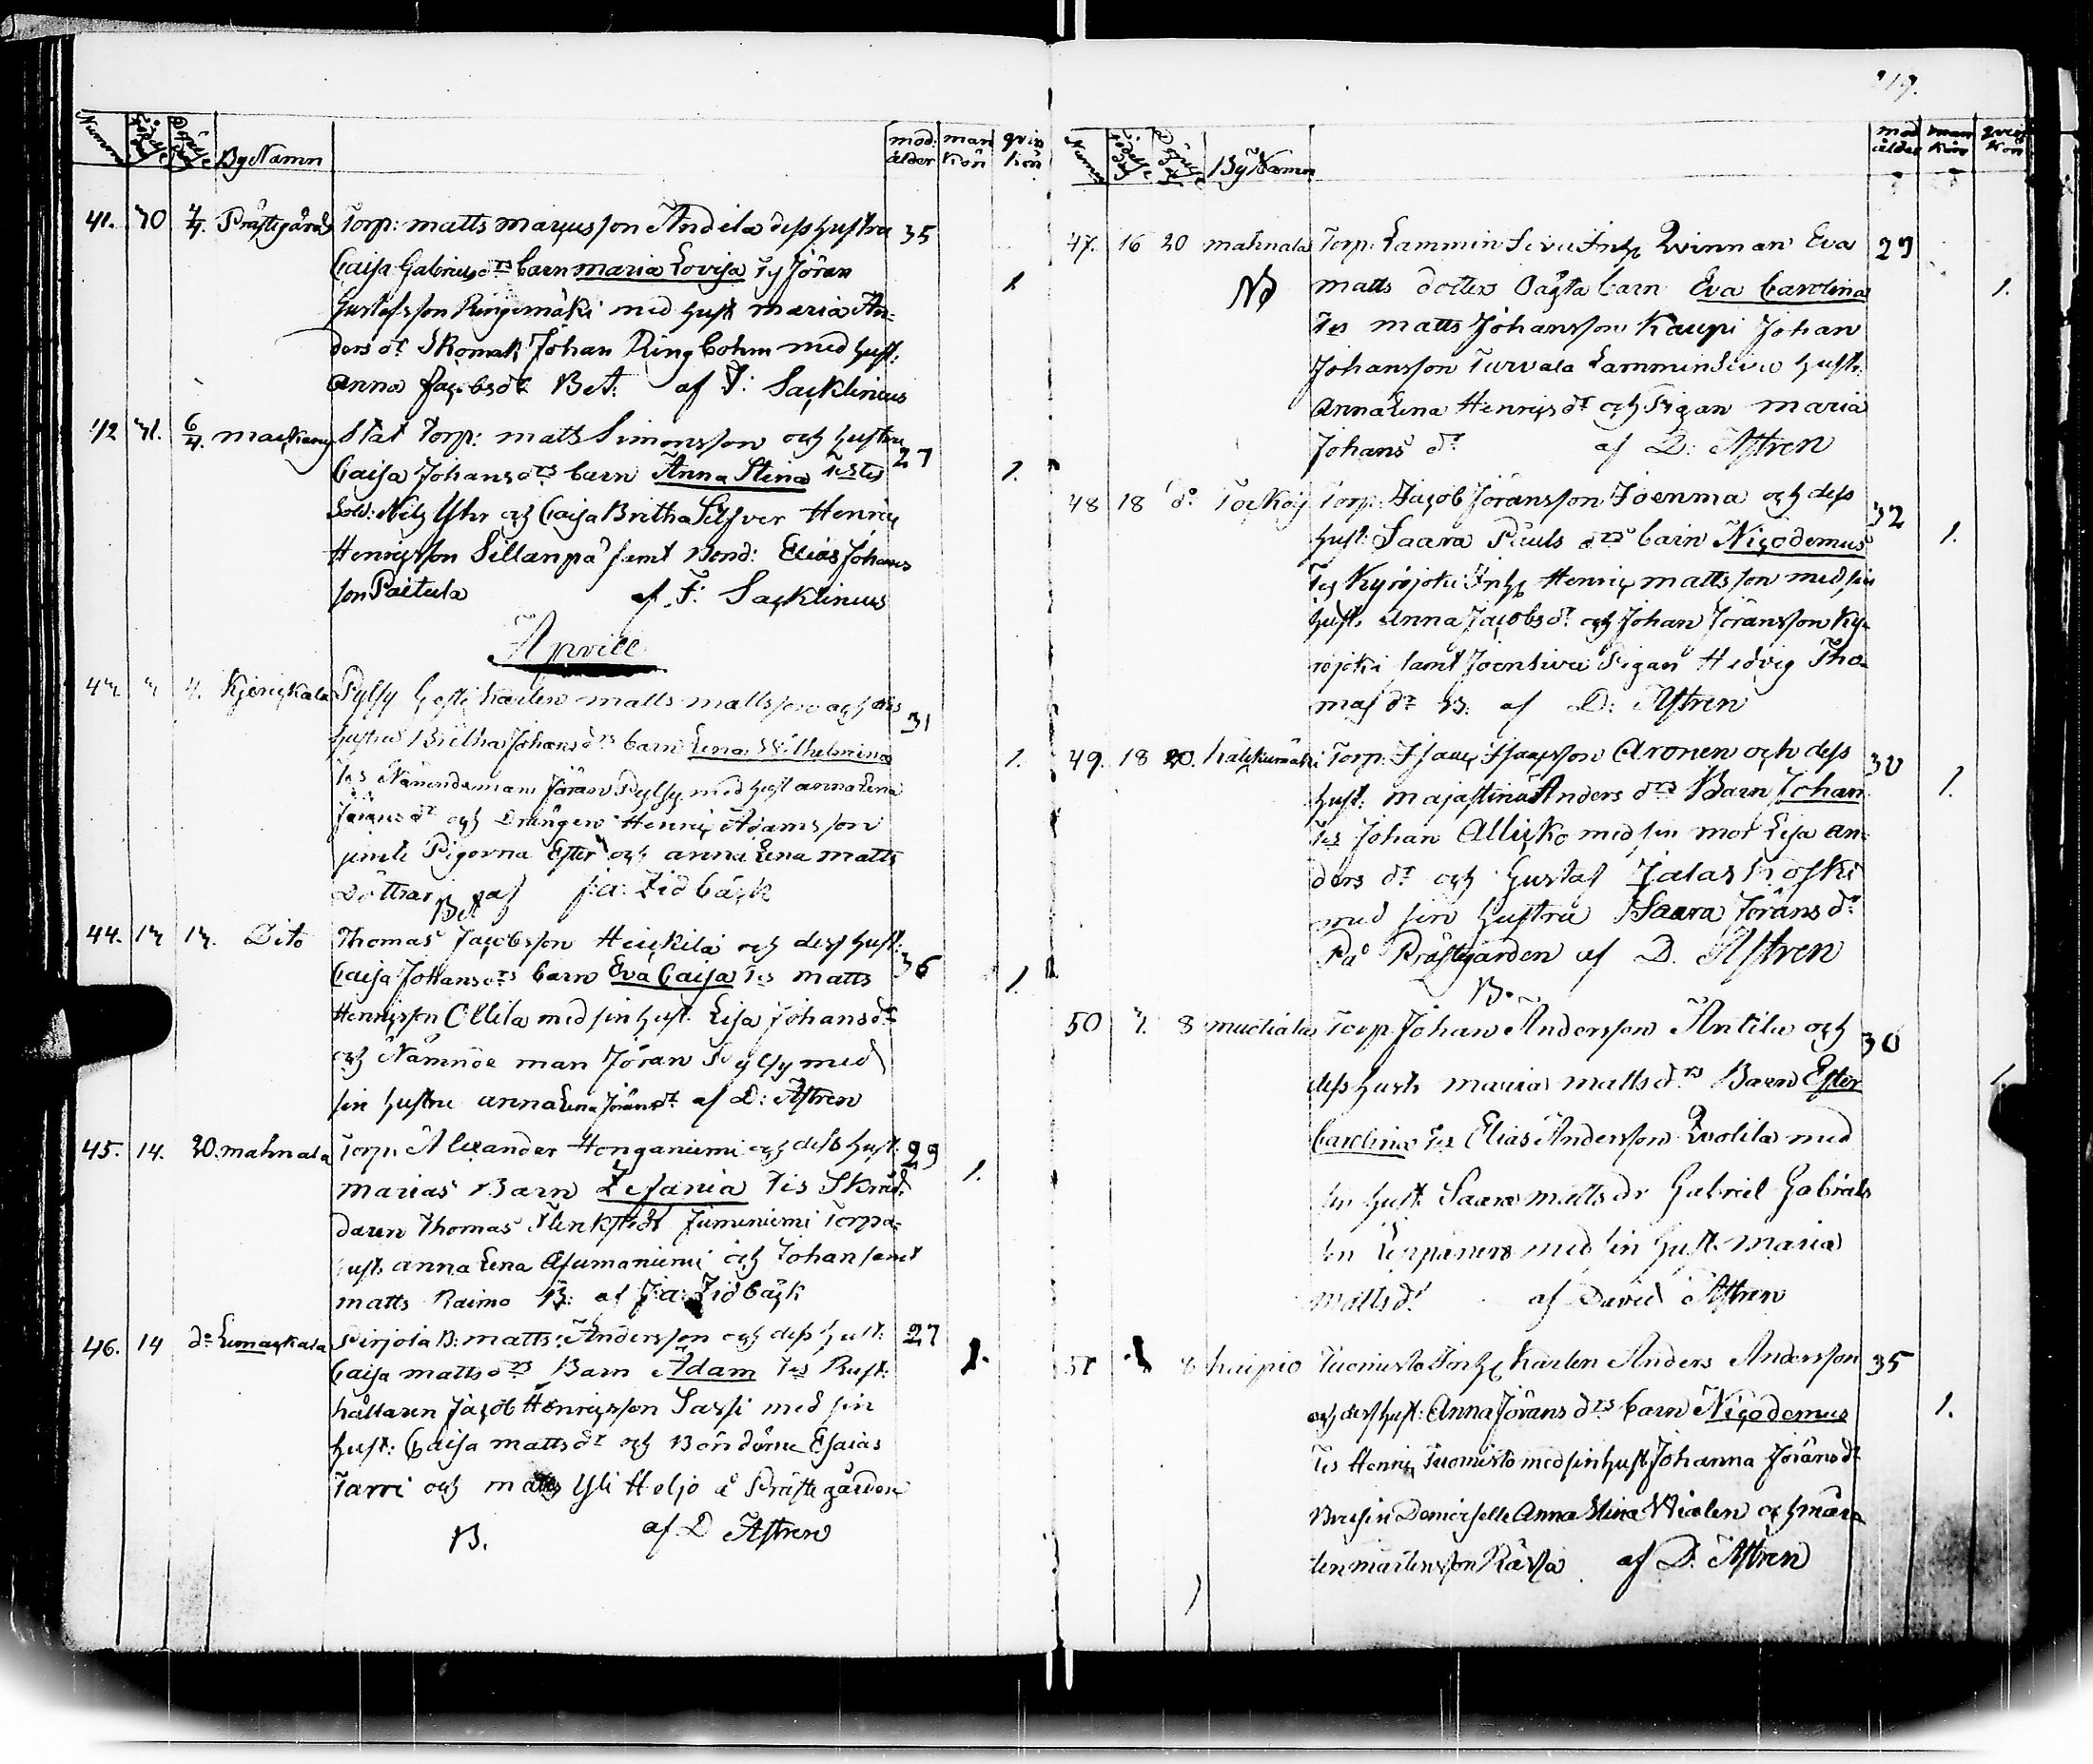 Numm Födelse dag Döpelse dag By Namn mod: ålder man kön qvin kön
41. 30 4/4. Prästegård Torp: matts marcusson Andila dess hustru 35
Caisa Gabriels drs barn maria Lovisa Ts Jöran 1
Gustafsson Ringemäki med hust maria An-
ders dr Skomak Johan Ringbohm med hust:
anna Jacobsdr Bet. af F: Sacklinius
42 31. 6/4. Stat Torp: matts Simonsson och hustru 27
Caisa Johansdrs barn Anna Stina Testes 1.
Sold: Nils Yhr och Caisa Britha Silfver Henric
Henricsson Sillanpä samt Bond: Elias Johans
son Paitula af F: Sacklinius
Aprill
43 3 4. Kyröskala matts mattsson och dess 31
hustru Britha Johans drs barn Lena Wilhelmina
Tes Nämndeman Jöran Pylsy med hust anna Lena 1.
Jörans dr och Drängen Henric Adamsson
jemte Pigorna Ester och anna Lena matts
Döttrar Bet af J:a: Lidbäck
44. 13 13. Dito Thomas Jacobsson Heickilä och dess hust: 36
Caisa Johansdrs barn Eva Caisa Ts matts 1.
Henricsson Ollila med sin hust. Lisa Johansdr
och Nämnde man Jöran Pylsy med
sin hustru anna Lena Jöransdr af D: Astren
45. 14. 20. mahnala Torp: Alexander Honganiemi och dess hust: 29
marias Barn Zefania Tes Skräd- 1.
daren Thomas Flinkstedt Torpa-
hust anna Lena och Johan samt
matts Raimo B: af J:a: Lidbäck
46. 14 do Pirjola B: matts Andersson och dess hust: 27
Caisa matts drs Barn Adam Tes Rust: 1.
hållaren Jacob Henricsson Sassi med sin
hust: Caisa mattsdr och Bönderne Esaias
Tarri och matts Yli Heljo å Prästegården
B. af D Astren
217.
Numm Födelse dag Döpelse dag By Namn mod ålder man kön qvin kön
47. 16 20 mahnala Torp: Lamminsivu Inhs Qvinnan Eva 29
Nd matts dotters Oägta barn Eva Carolina 1.
Tes matts Johansson Kaupi Johan
Johansson Turvala Lamminsivu hust:
Anna Lena Henricsdr och Pigan maria
Johans dr af D: Astren
48 18 do Torp: Jacob Jöransson Joenma och dess 32
hust: Saara Pauls drs barn Nicodemus 1.
Ts Kyröjoki Inhs Henric mattsson med sin
hust. Anna Jacobsdr och Johan Jöransson Ky-
röjoki samt Joensivu Pigan Hedvig Tho-
mas dr B. af D: Astren
49. 18 20. Torp: Isaac Isacsson Aronen och dess 30
hust: majastina Anders drs Barn Johan 1.
Tes Johan med sin mor Lisa an-
ders dr och Gustaf Jalaskoski
med sin hustru Saara Jörans dr
På Prästgården af D. Astren
B.
50 3. 8 muctiala Torp Johan Andersson Antila och 30
dess hust maria mattsdrs Barn Ester 1.
Carolina Tes Elias Andersson med
sin hust Saara matts dr Gabriel Gabriels
son med sin hust. maria
matts dr af David Astren
51 8 haipio Tuomisto Inhs Karlen Anders Andersson 35
och dess hust: Anna Jörans drs barn Nicodemus 1.
Tes Henric Tuomisto med sin hust Johanna Jöransdr
Demoiselle Anna Stina Wialen och mår-
ten mårtensson Räsya af D. Astren